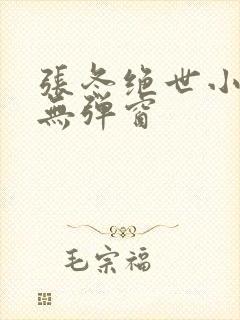 張冬绝世小
無弹窗
毛宗福